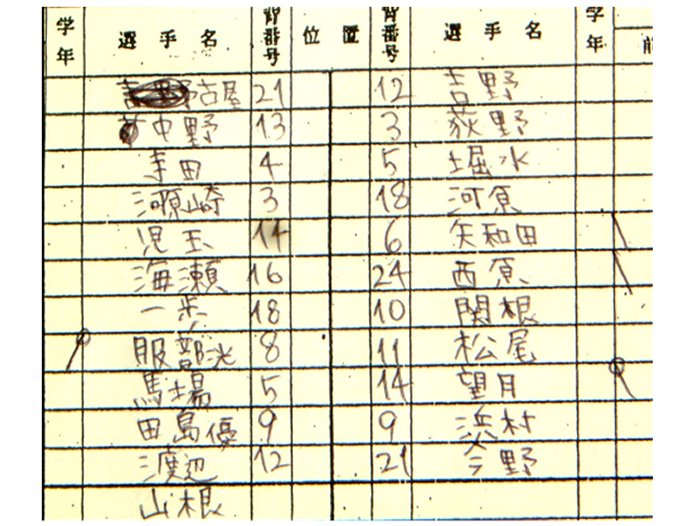 学年 選手名 背番号 位置 背番号 選手名 学年 前
古屋 21 12 吉野
中野 13 3 荻野
寺田 4 5 堀水
河原崎 3 18 河原
児玉 14 6 矢和田
海瀬 16 24 西原
一歩 18 10 関根
服部洸 8 11 松尾
馬場 5 14 望月
田島優 9 9 浜村
渡辺 12 21 今野
山根